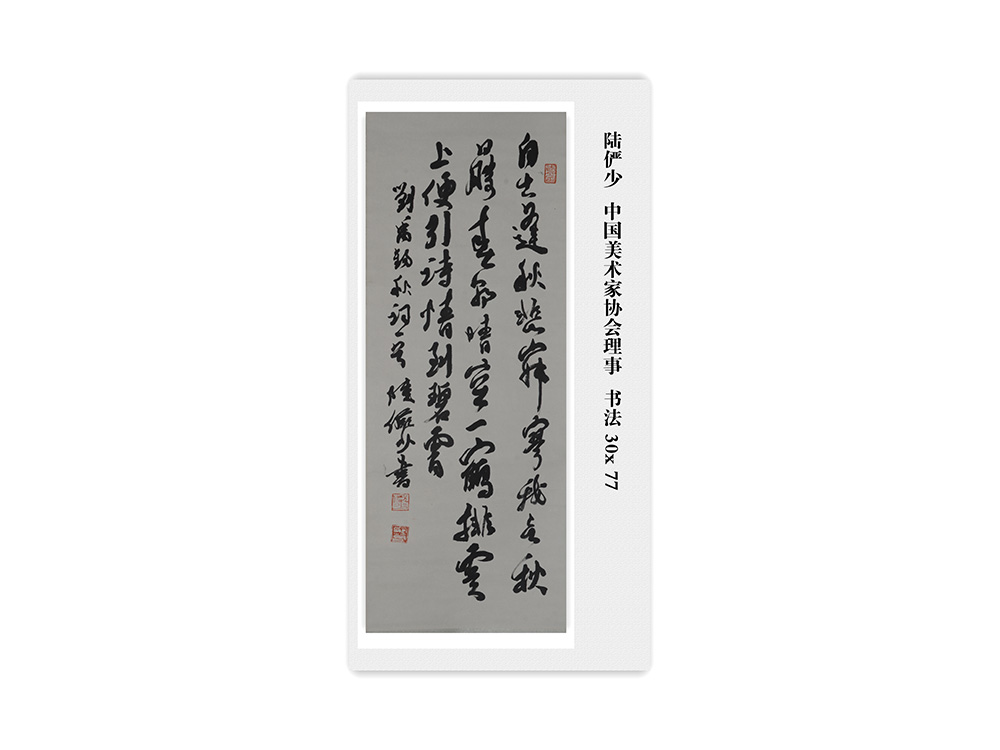 陆俨少 中国美术家协会理事 书法 30x 77
自古逢秋悲寂寥我言秋
日勝春朝晴空一鶴排雲
上便引詩情到碧霄
劉禹錫秋詞一首 陸儼少書